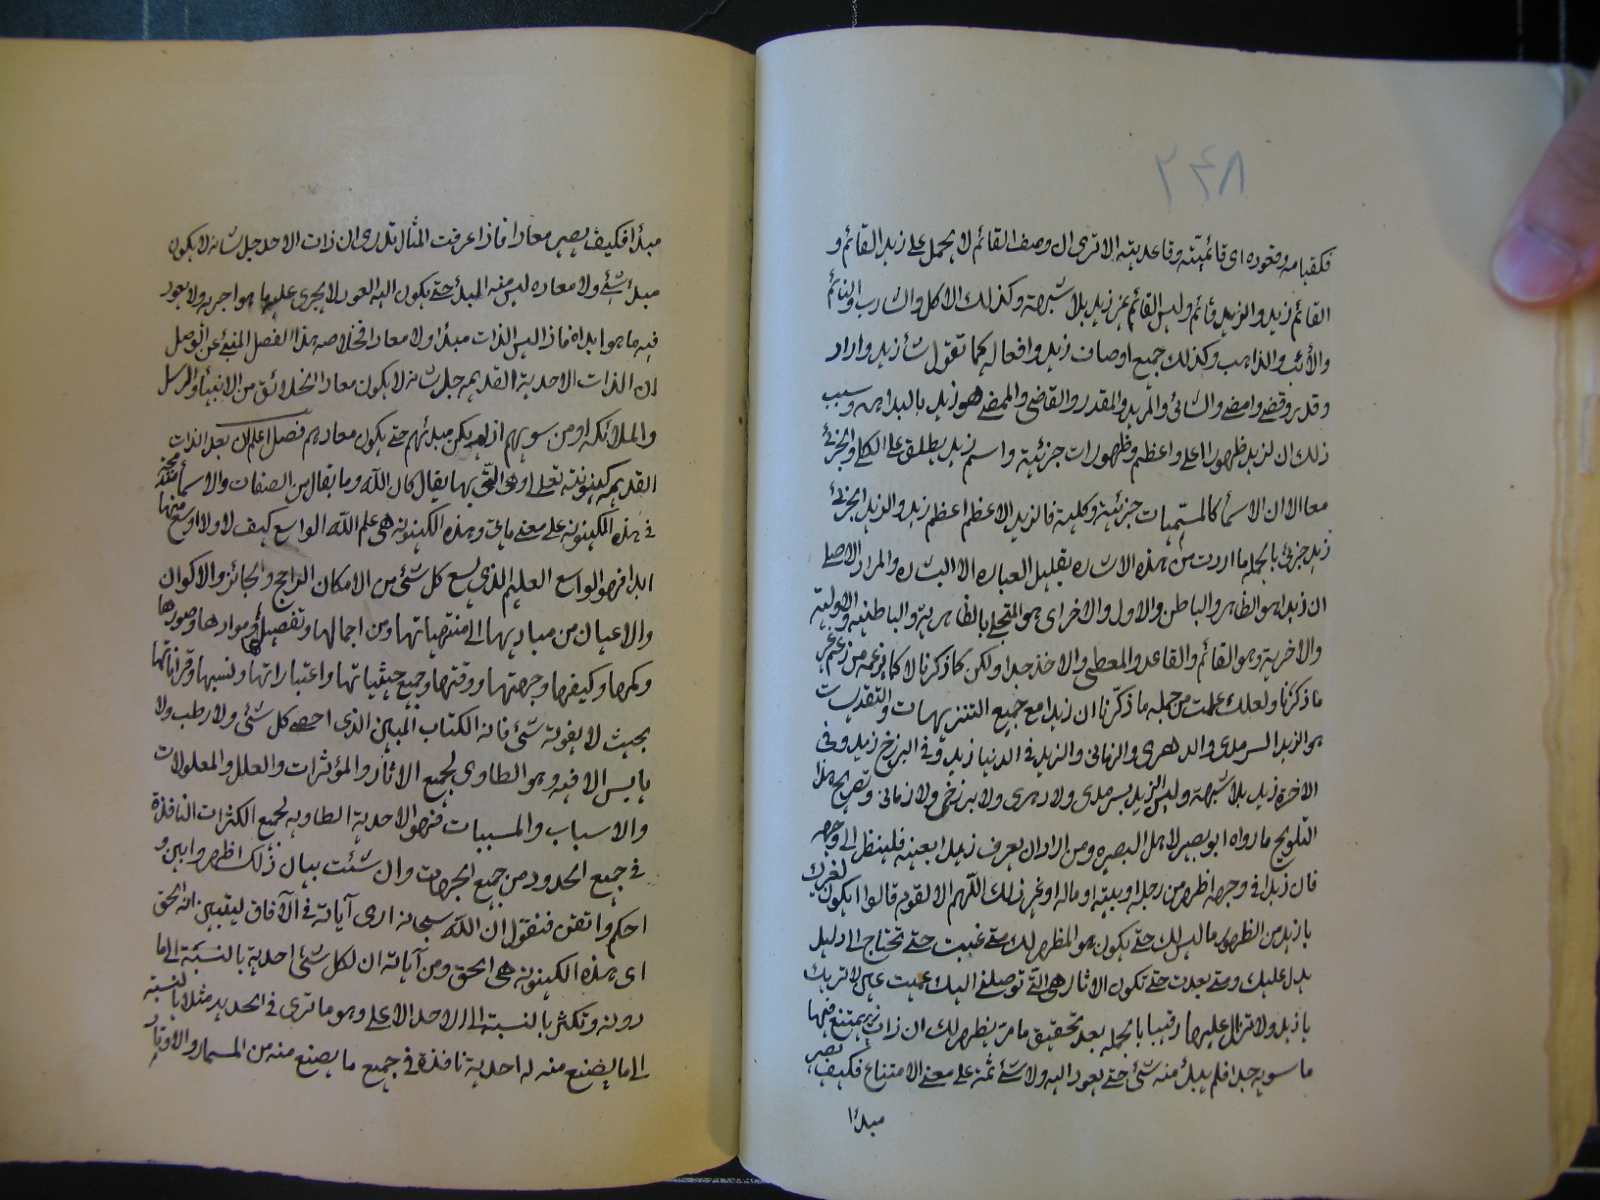 فكقيامه وقعوده اى قائميته وقاعديته الا ترى ان وصف القائم لا يحمل على زيد القائم و
القائم زيد والزيد قائم وليس القائم غير زيد بلا شبهة وكذلك الاكل والشارب والنائم
والآئب والذاهب وكذلك جميع اوصاف زيد وافعاله كما تقول شاء زيد واراد
وقدر وقضى وامضى والشائى والمريد والمقدر والقاضى والممضى هو زيد بالبداهة وسبب
ذلك ان لزيد ظهورا اعلى واعظم وظهورات جزئية واسم زيد يطلق على الكلى والجزئى
معا الا ان الاسماء كالمسميات جزئية وكلية فالزيد الاعظم اعظم زيد والزيد الجزئى
زيد جزئى بالجمله ما اردت من هذه الاشاره بقليل العباره الا البشاره والمراد الاصلى
ان زيدا هو الظاهر والباطن والاول والاخر اى هو المتجلى بالظاهرية والباطنية والاولية
والاخرية وهو القائم والقاعد والمعطى والاخذ جدا ولكن كما ذكرنا لا كما يزعمه من زعم غير
ما ذكرنا ولعلك علمت من جمله ما ذكرنا ان زيدا مع جميع التنزيهات والتقديسات
هو الزيد السرمدى والدهرى والزمانى والزيد فى الدنيا زيد وفى البرزخ زيد وفى
الاخرة زيد بلا شبهة وليس الزيد بسرمدى ولا دهرى ولا برزخى ولا زمانى وتصريح هذا
التلويح ما رواه ابو بصير لاهل البصره ومن اراد ان يعرف زيدا بعينه فلينظر الى وجهه
فان زيدا فى وجهه اظهر من رجله او بيته او ماله او غير ذلك اللهم الا لقوم قالوا ايكون لغيرك
يا زيد من الظهور ما ليس لك حتى يكون هو المظهر لك متى غبت حتى تحتاج الى دليل
يدل عليك ومتى بعدت حتى تكون الاثار هى التى توصلنى اليك عميت عين لا تريك
يا زيد ولا تزال عليها رقيبا بالجمله بعد تحقيق ما مر يظهر لك ان ذات زيد يمتنع فيها
ما سويه جدا فلم يبدأ منه شئ حتى يعود اليه ولا شئ ثمة على معنى الامتناع فكيف يصير
مبدأ
مبدأ فكيف يصير معادا فاذا عرفت المثال تدرى ان ذات الاحد جل شانه لا يكون
مبدأ شئ ولا معاده ليس منه المبدأ حتى يكون اليه العود لا يجرى عليه ما هو اجريه ولا يعود
فيه ما هو ابداه فاذا ليس الذات مبدأ ولا معادا فخلاصة هذا الفصل المنبئ عن الوصل
ان الذات الاحدية القديمه جل شانه لا يكون معاد الخلائق من الانبياء والرسل
والملائكه او من سويهم اذ لم يكن مبدئهم حتى يكون معادهم فصل اعلم ان بعد الذات
القديمه كينونته تعالى وهى التى بها يقال كان الله وما يقال من الصفات والاسماء متحققة
فى هذه الكينونة على معنى ما يأتى وهذه الكينونة هى علم الله الواسع كيف لا ولا اوسع منها
ابدا فهو الواسع العليم الذى يسع كل شئ من الامكان الراجح والجائز والاكوان
والاعيان من مباديها الى منتهياتها ومن اجمالها وتفصيلها وموادها وصورها
وكمها وكيفها وجهتها ووقتها وجميع حيثياتها واعتباراتها ونسبها وقراناتها
بحيث لا يفوته شئ فانه الكتاب المبين الذى احصى كل شئ ولا رطب ولا
يابس الا فيه وهو الطاوى لجميع الاثار والمؤثرات والعلل والمعلولات
والاسباب والمسببات فهو الاحدية الطاويه لجميع الكثرات النافذة
فى جميع الحدود من جميع الجهات وان شئت بيان ذلك اظهر وابين و
احكم واتقن فنقول ان الله سبحانه ارى آياته فى الآفاق ليتبين انه الحق
اى هذه الكينونة هى الحق ومن آياته ان لكل شئ احدية بالنسبة الى ما
دونه وتكثر بالنسبة الى الاحد الاعلى وهو ما ترى فى الحديد مثلا بالنسبة
الى ما يصنع منه له احدية نافذة فى جميع ما يصنع منه من المسمار والاوتاد